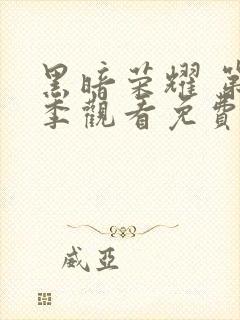 黑暗荣耀 第
季觀看免費
威亞